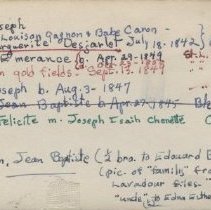 seph
Louison Gagnon & Babe Caron -
rguerite Desjarlet July 18. 1842)
Emerance b. Apr. 29. 1849
n gold fields - Sept. 13. 1849
seph b. Aug. 3. 1847
Jean Baptiste b. Apr. 27. 1845
Felicite m. Joseph Isaih Chenette
n, Jean Baptiste (½ bro. to Edouard
(pic. of "family" fro
Lavadour files.
"uncle" to Edna